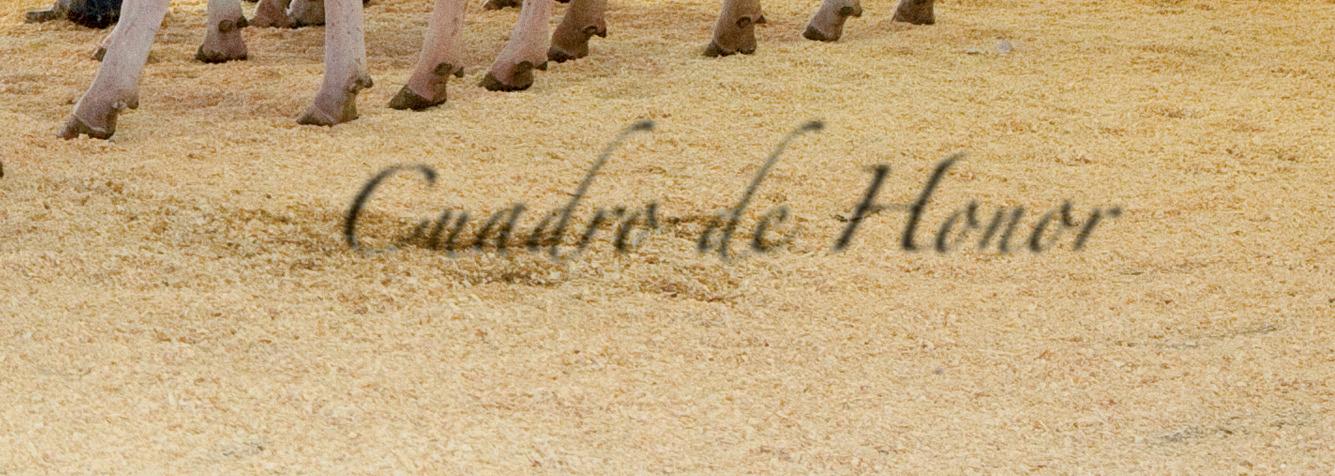 Cuadro de Honor